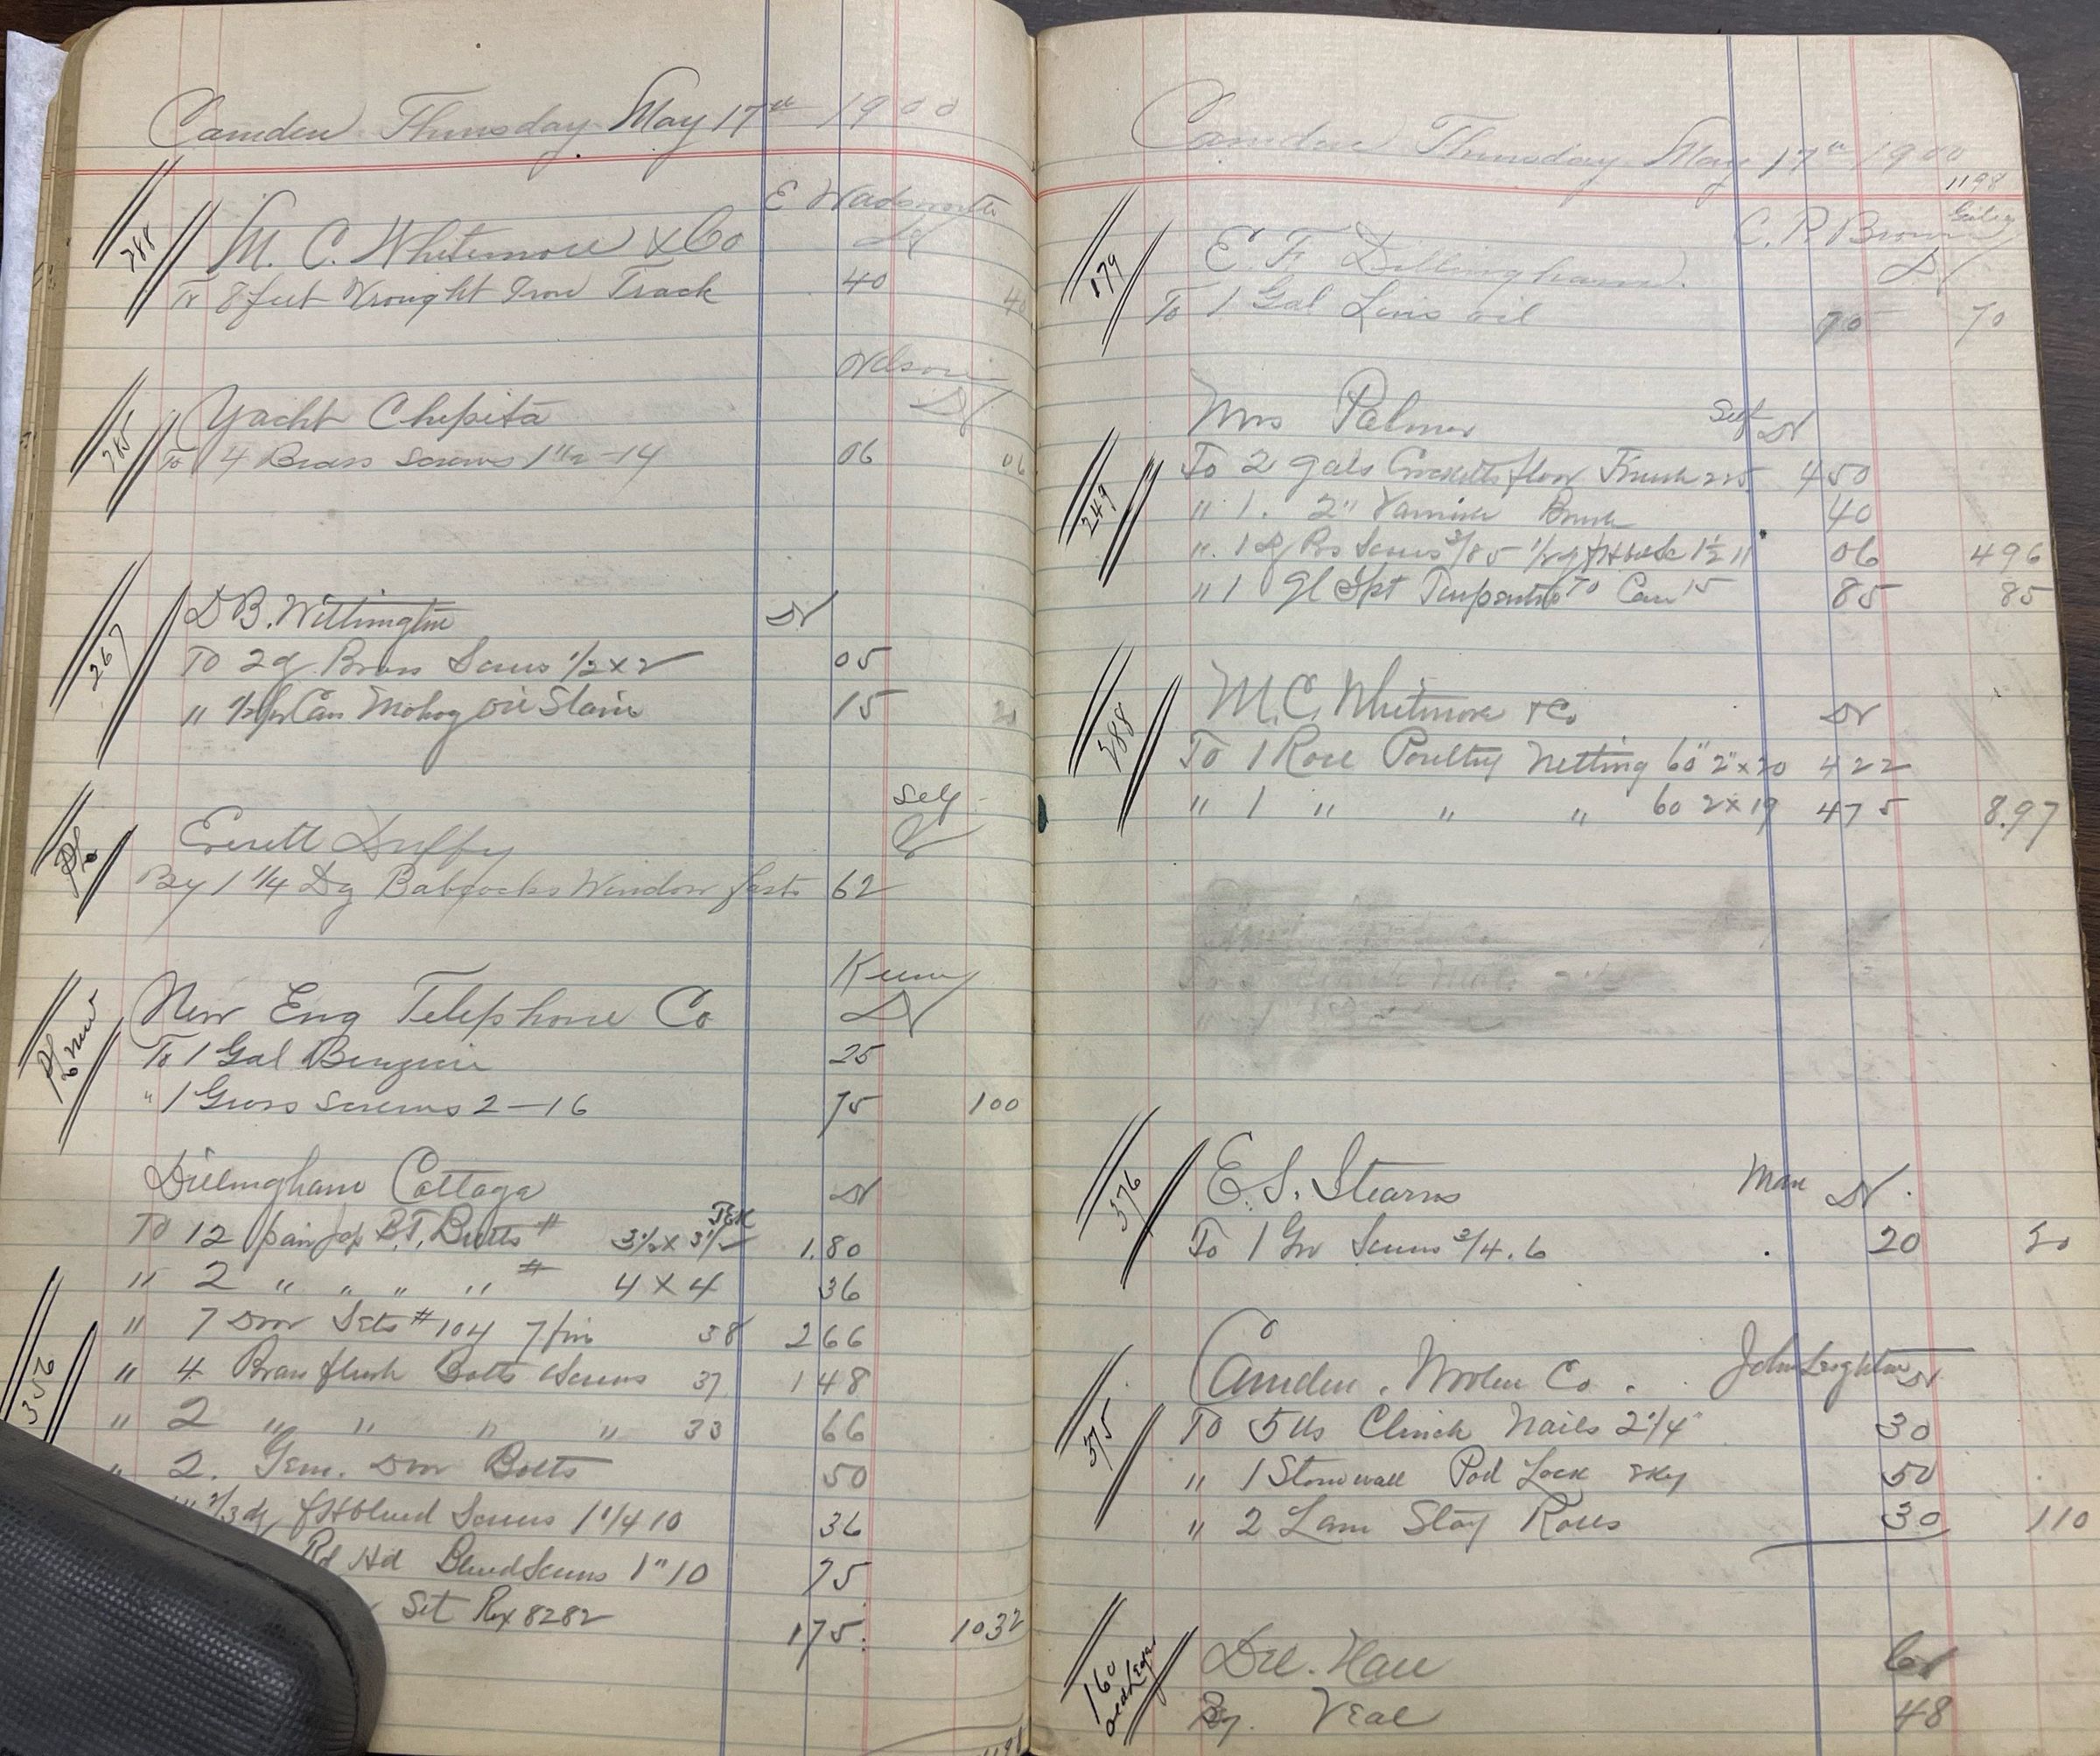 Camden Thursday May 17th 1900
E Wadsworth
288 M. C. Whitemore & Co Dr
To 8 feet Wrought Iron Track 40 40
Nelson
Yacht Chepita Dr
To 4 Brass screws 1 1/2 - 14 06 06
267 D B. Wittington Dr
To 2 dz Brass Scrus 1/2 x 2 05
" Can Mohog oil Stain 15 20
Self
Everett Duffy Cr
By 1 1/4 Dz Babcocks Window fasts 62
New Eng Telephone Co Dr
To 1 Gal Benzine 25
" 1 Gross screws 2 - 16 75 100
Dillingham Cottage Dr
To 12 pair Jap B.T. Butts # 3 1/2 x 3 1/2 1.80
" 2 " " " " # 4 x 4 36
" 7 Door Sets # 104 38 266
352 " 4 Brass flush Bolts Scrus 37 148
" 2 " " " " 33 66
" 2. Gem. Door Bolts 50
2/3 dz f H blued Scrus 1 1/4 10 36
Rd Hd Blued Scrus 1" 10 75
Set Rex 8282 175. 1032
Camden Thursday May 17th 1900
1198
C. P. Brown
179 E. F. Dillingham. Dr
To 1 Gal Lins oil 70 70
249 Mrs Palmer Self Dr
To 2 gals Crocketts floor Finish 225 450
" 1. 2" Varnish Brush 40
" 1 dz Brs Scrus 3/8 5 1 1/2 11 06 496
" 1 gl Spt Turpentine 70 Can 15 85 85
288 M. C. Whitmore & Co Dr
To 1 Roll Poultry Netting 60" 2" x 20 422
" 1 " " " 60 2 x 19 475 8.97
376 E. S. Stearns Man Dr.
To 1 Gro Scrus 3/4. 6 20 20
375 Camden. Wolen Co. John Leighton Dr
To 5 lbs Clinch Nails 2 1/4" 30
" 1 Stonewall Pad Lock 2 Key 50
" 2 Lam Stay Rolls 30 110
160 old Leger Dll. Hall Cr
By. Veal 48